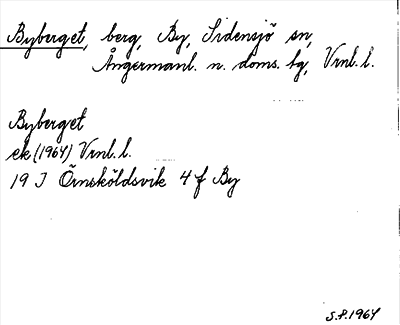 Byberget, berg, By, Sidensjö sn,
Ångermanl. n. doms. hg, Vrnl. l.
Byberget
ek (1964) Vrnl. l.
19 J Örnsköldsvik 4 f By
S.P. 1964